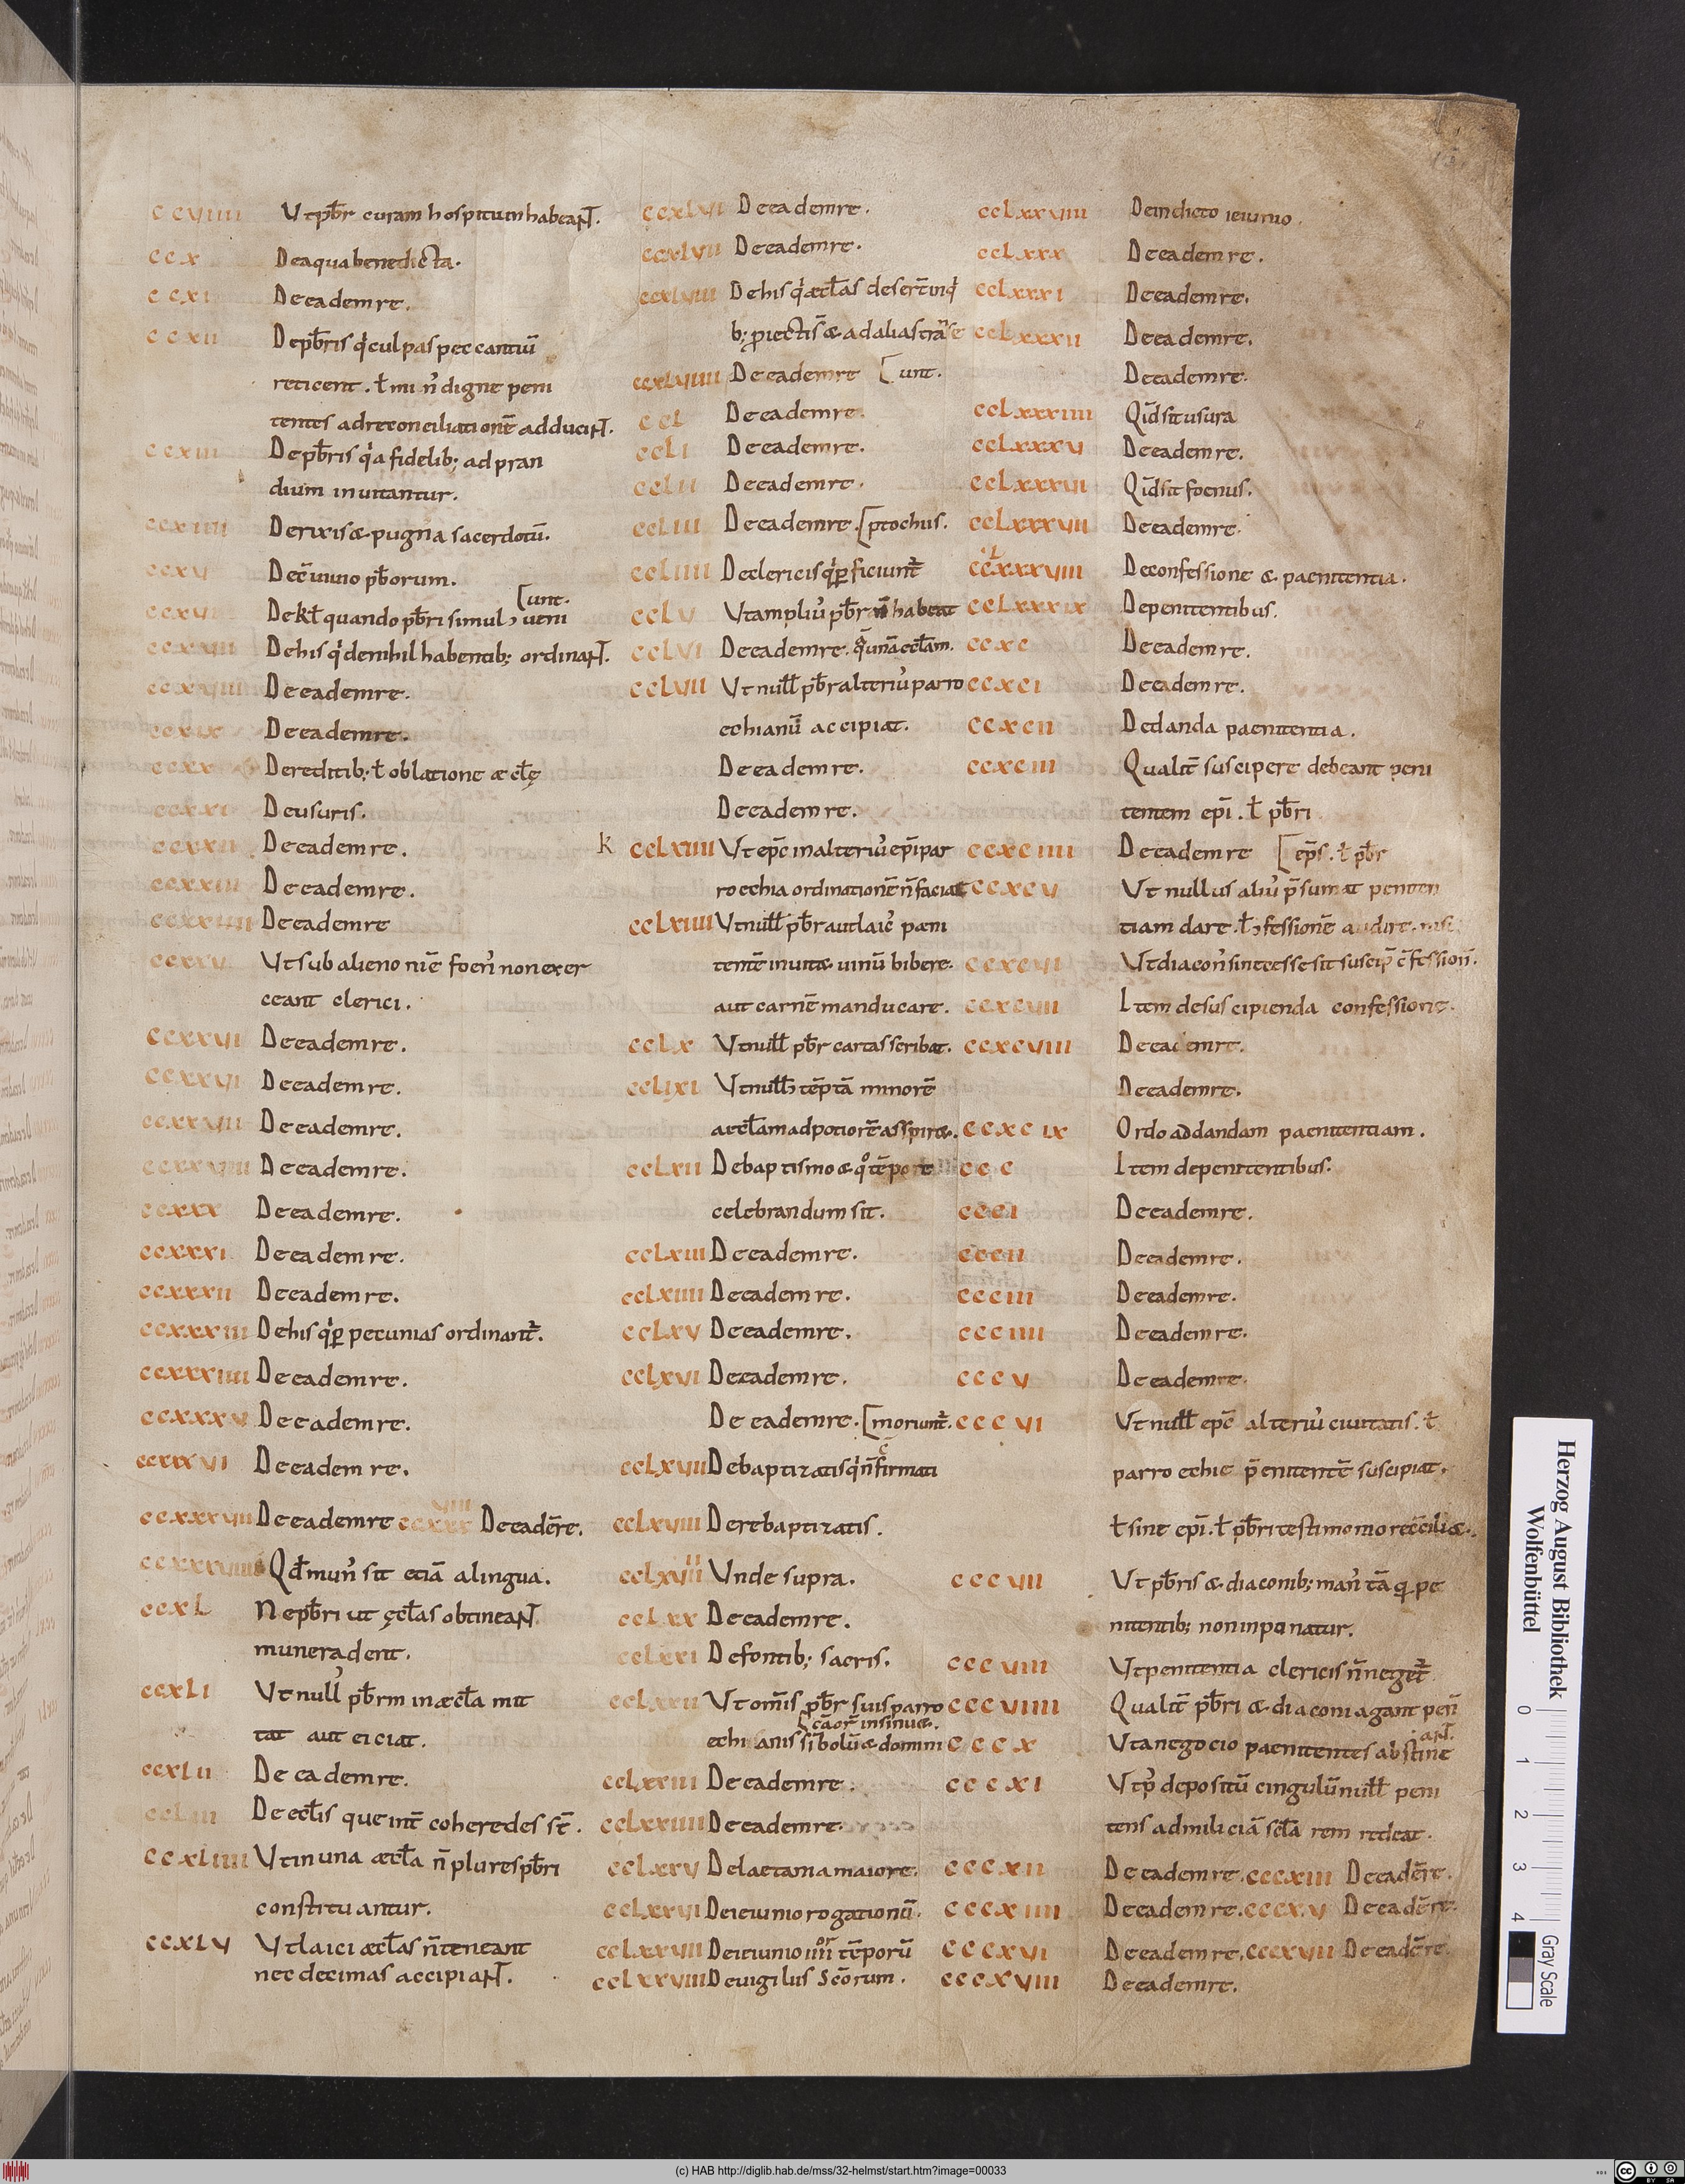 ccviiii Ut pb̄r curam hospitum habeant.
ccx De aqua benedicta.
ccxi De eadem re.
ccxii De pb̄ris q̍ culpas peccantiū
reticent. ł mi n̄ digne peni
tentes ad reconciliationē adducant.
ccxiii De pb̄ris q̍ a fidelib; ad pran
dium inuitantur.
ccxiiii De rixis & pugna sacerdotū.
ccxv De c̄iuuio pb̄orum.
[unt.
ccxvi De kł quando pb̄ri simul ɔueni
ccxvii De his q̍ de nihil habentib; ordinant.
ccxviii De eadem re.
ccxix De eadem re.
ccxx De reditib; ł oblatione æcłę
ccxxi De usuris.
ccxxii De eadem re.
ccxxiii De eadem re.
ccxxiiii De eadem re
ccxxv Ut sub alieno niē foen̄ non exer
ceant clerici.
ccxxvi De eadem re.
ccxxvi De eadem re.
ccxxvii De eadem re.
ccxxviiii De eadem re.
ccxxx De eadem re.
ccxxxi De eadem re.
ccxxxii De eadem re.
ccxxxiii De his q̍ p̱ pecunias ordinant̄.
ccxxxiiii De eadem re.
ccxxxv De eadem re.
ccxxxvi De eadem re.
ccxxxvii De eadem re ccxxxviii De eadē re.
ccxxxviiii Qđ mun̄ sit etiā a lingua.
ccxL Ne pb̄ri ut ęcłas obtineant
munera dent.
ccxLi Ut null̍ pb̄rm in æcła mit
tat aut eiciat.
ccxLii De eadem re.
ccLiii De ecłis que int̄ coheredes st̄.
ccxLiiii Ut in una æcła n̄ plures pb̄ri
constituantur.
ccxLv Ut laici æcłas n̄ teneant
nec decimas accipiant.
ccxLvi De eadem re.
ccxLvii De eadem re.
ccxLviii De his q̍ æcłas desert̄ inq̍
b; p̱iectis̄ & ad alias trās̄e
ccxLviiii De eadem re [unt.
ccL De eadem re.
ccLi De eadem re.
ccLii De eadem re.
ccLiii De eadem re. [ptochus.
ccLiiii De clericis q̍ p̱ficiunt̄
ccLv Ut ampliu̍ pb̄r n̄ habeat
ccLvi De eadem re. q̄ unā æcłam.
ccLvii Ut nulł pb̄r alteriu̍ parro
echianū accipiat.
De eadem re.
De eadem re.
k ccLviiii Ut ep̄c in alteriu̍ ep̄i par
rochia ordinationē n̄ faciat
ccLxiiii Ut nulł pb̄r aut laic̍ pæni
tentē inuit& uinū bibere.
aut carnē manducare.
ccLx Ut nulł pb̄r cartas scribat.
ccLixi Ut nulł ɔtēp̄tā minorē
aecłam ad potiorē asspir&.
ccLxii De baptismo & q̊ tēpore
celebrandum sit.
ccLxiii De eadem re.
ccLxiiii De eadem re.
ccLxv De eadem re.
ccLxvi De eadem re.
De eadem re. [moriunt̄.
ccLxvii De baptizatis q̍ n̄ c̄firmati
ccLxviii De rebaptizatis.
ccLxviiii Unde supra.
ccLxx De eadem re.
ccLxxi De fontib; sacris.
ccLxxii Ut om̄is pb̄r suis parro
[c̄a or̄ insinu&.
echianis sibolū & domini
ccLxxiii De eadem re.
ccLxxiiii De eadem re.
ccLxxv De laetania maiore.
ccLxxvi De ieiunio rogationū.
ccLxxvii De ieiunio iiiior tēporū
ccLxxviii De uigiliis Sc̄orum.
ccLxxviiii De indicto ieiunio.
ccLxxx De eadem re.
ccLxxxi De eadem re.
ccLxxxii De eadem re.
De eadem re.
ccLxxxiiii Qid̄ sit usura
ccLxxxv De eadem re.
ccLxxxvi Qid̄ sit foenus.
ccLxxxvii De eadem re.
ccLxxxviii De confessione & paenitentia.
ccLxxxix De penitentibus.
ccxc De eadem re.
ccxci De eadem re.
ccxcii De danda paenitentia.
ccxciii Qualit̄ suscipere debeant peni
tentem epi. ł pb̄ri
ccxciiii De eadem re [ep̄s. ł pb̄r
ccxcv Ut nullus aliu̍ p̄sumat peniten
tiam dare. ł ɔfessionē audire. nisi
ccxcvi Ut diacon̄ si necesse sit suscip̄ c̄fession̄.
ccxcvii Item de suscipienda confessione.
ccxcviii De eadem re.
De eadem re.
ccxcix Ordo ad dandam paenitentiam.
ccc Item de penitentibus.
ccci De eadem re.
cccii De eadem re.
ccciii De eadem re.
ccciiii De eadem re.
cccv De eadem re.
cccvi Ut nulł ep̄c alteriu̍ ciuitatis. ł
parroechie p̄enitentē suscipiat.
ł sine epi. ł pb̄ri testimonio rec̄cili&.
cccvii Ut pb̄ris & diaconib; man̄ tā q̄ pe
nitentib; non inponatur.
cccviii Ut penitentia clericis n̄ neget̄
cccviiii Qualit̄ pb̄ri & diaconi agant pen̄
cccx Ut a negocio paenitentes abstineant.
cccxi Ut p̍ depositū cingulū nulł peni
tens ad miliciā sc̄la rem redeat.
cccxii De eadem re. cccxiii De eadē re.
cccxiiii De eadem re. cccxv De eadē re.
cccxvi De eadem re. cccxvii De eadē re.
cccxviii De eadem re.
Herzog August Bibliothek
Wolfenbüttel
0 1 2 3 4
Gray Scale
(c) HAB http://diglib.hab.de/mss/32-helmst/start.htm?image=00033